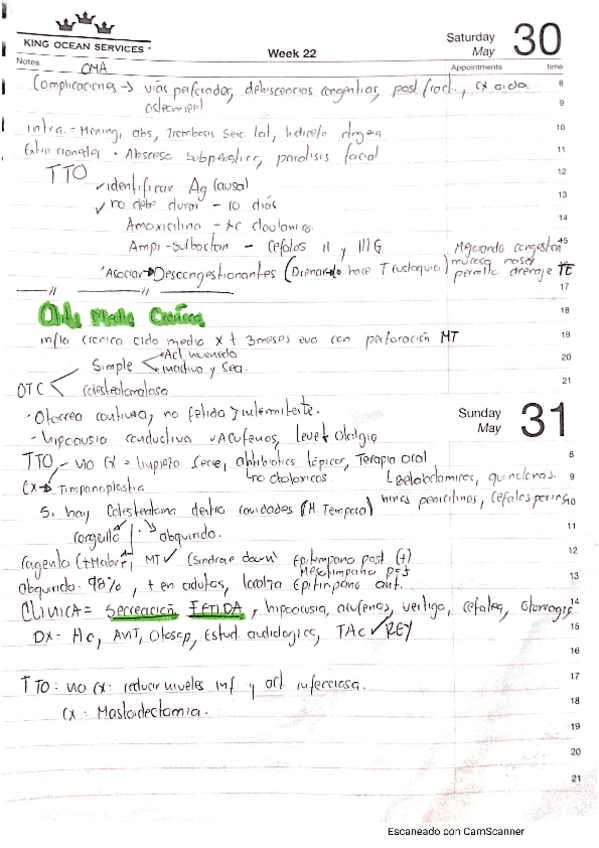 KING OCEAN SERVICES
Week 22
Saturday
May 30
Notes
Appointments
time
OMA
Complicaciones → vías perforadas, dehiscencias congenitas, post fract., cx oido
8
9
Intra = Mening, abs, Trombosis seno lat,
10
Extra craneales • Absceso subperiostico, paralisis facial
11
TTO
12
✓ identificar Ag causal
13
✓ no debe durar - 10 dias
Amoxicilina - ac clavulanico.
14
Ampi-sulbactan - Cefalos II y III G
15
Mejorando congestion
mucosa nasal
permite drenaje TE
16
Asociar → Descongestionantes (Drenando hace T Eustaquio)
17
Otitis Media Cronica
18
infla cronica oido medio x + 3 meses evo con perforación MT
19
Simple
inactiva y seca.
20
OTC
Colesteatomatosa
21
Sunday
May 31
- Otorrea continua, no fetida, intermitente.
- hipoacusia conductiva acufenos, leve otalgia
TTO - no Cx = limpieza seca, antibioticos tópicos, Terapia oral
8
no ototoxicos.
Betalactamicos, quinolonas.
9
Cx → Timpanoplastia
penicilinas, cefalosporinas
10
Si hay Colesteatoma dentro cavidades (H. Temporal)
11
congenito adquirido.
MT ✓ (Sindrome down) Epitimpano post (+)
12
Mesotimpano post
adquirido. 98%, + en adultos, localiza Epitimpano ant.
13
CLINICA = Secreación FETIDA, hipoacusia, acufenos, vertigo, cefalea, otorragia
14
DX - Hc, Otoscop, Estud. audiologico, TAC ✓ REY
15
16
TTO: no Cx: reducir niveles inf y act infecciosa.
17
Cx: Mastoidectomia.
18
19
20
21
Escaneado con CamScanner